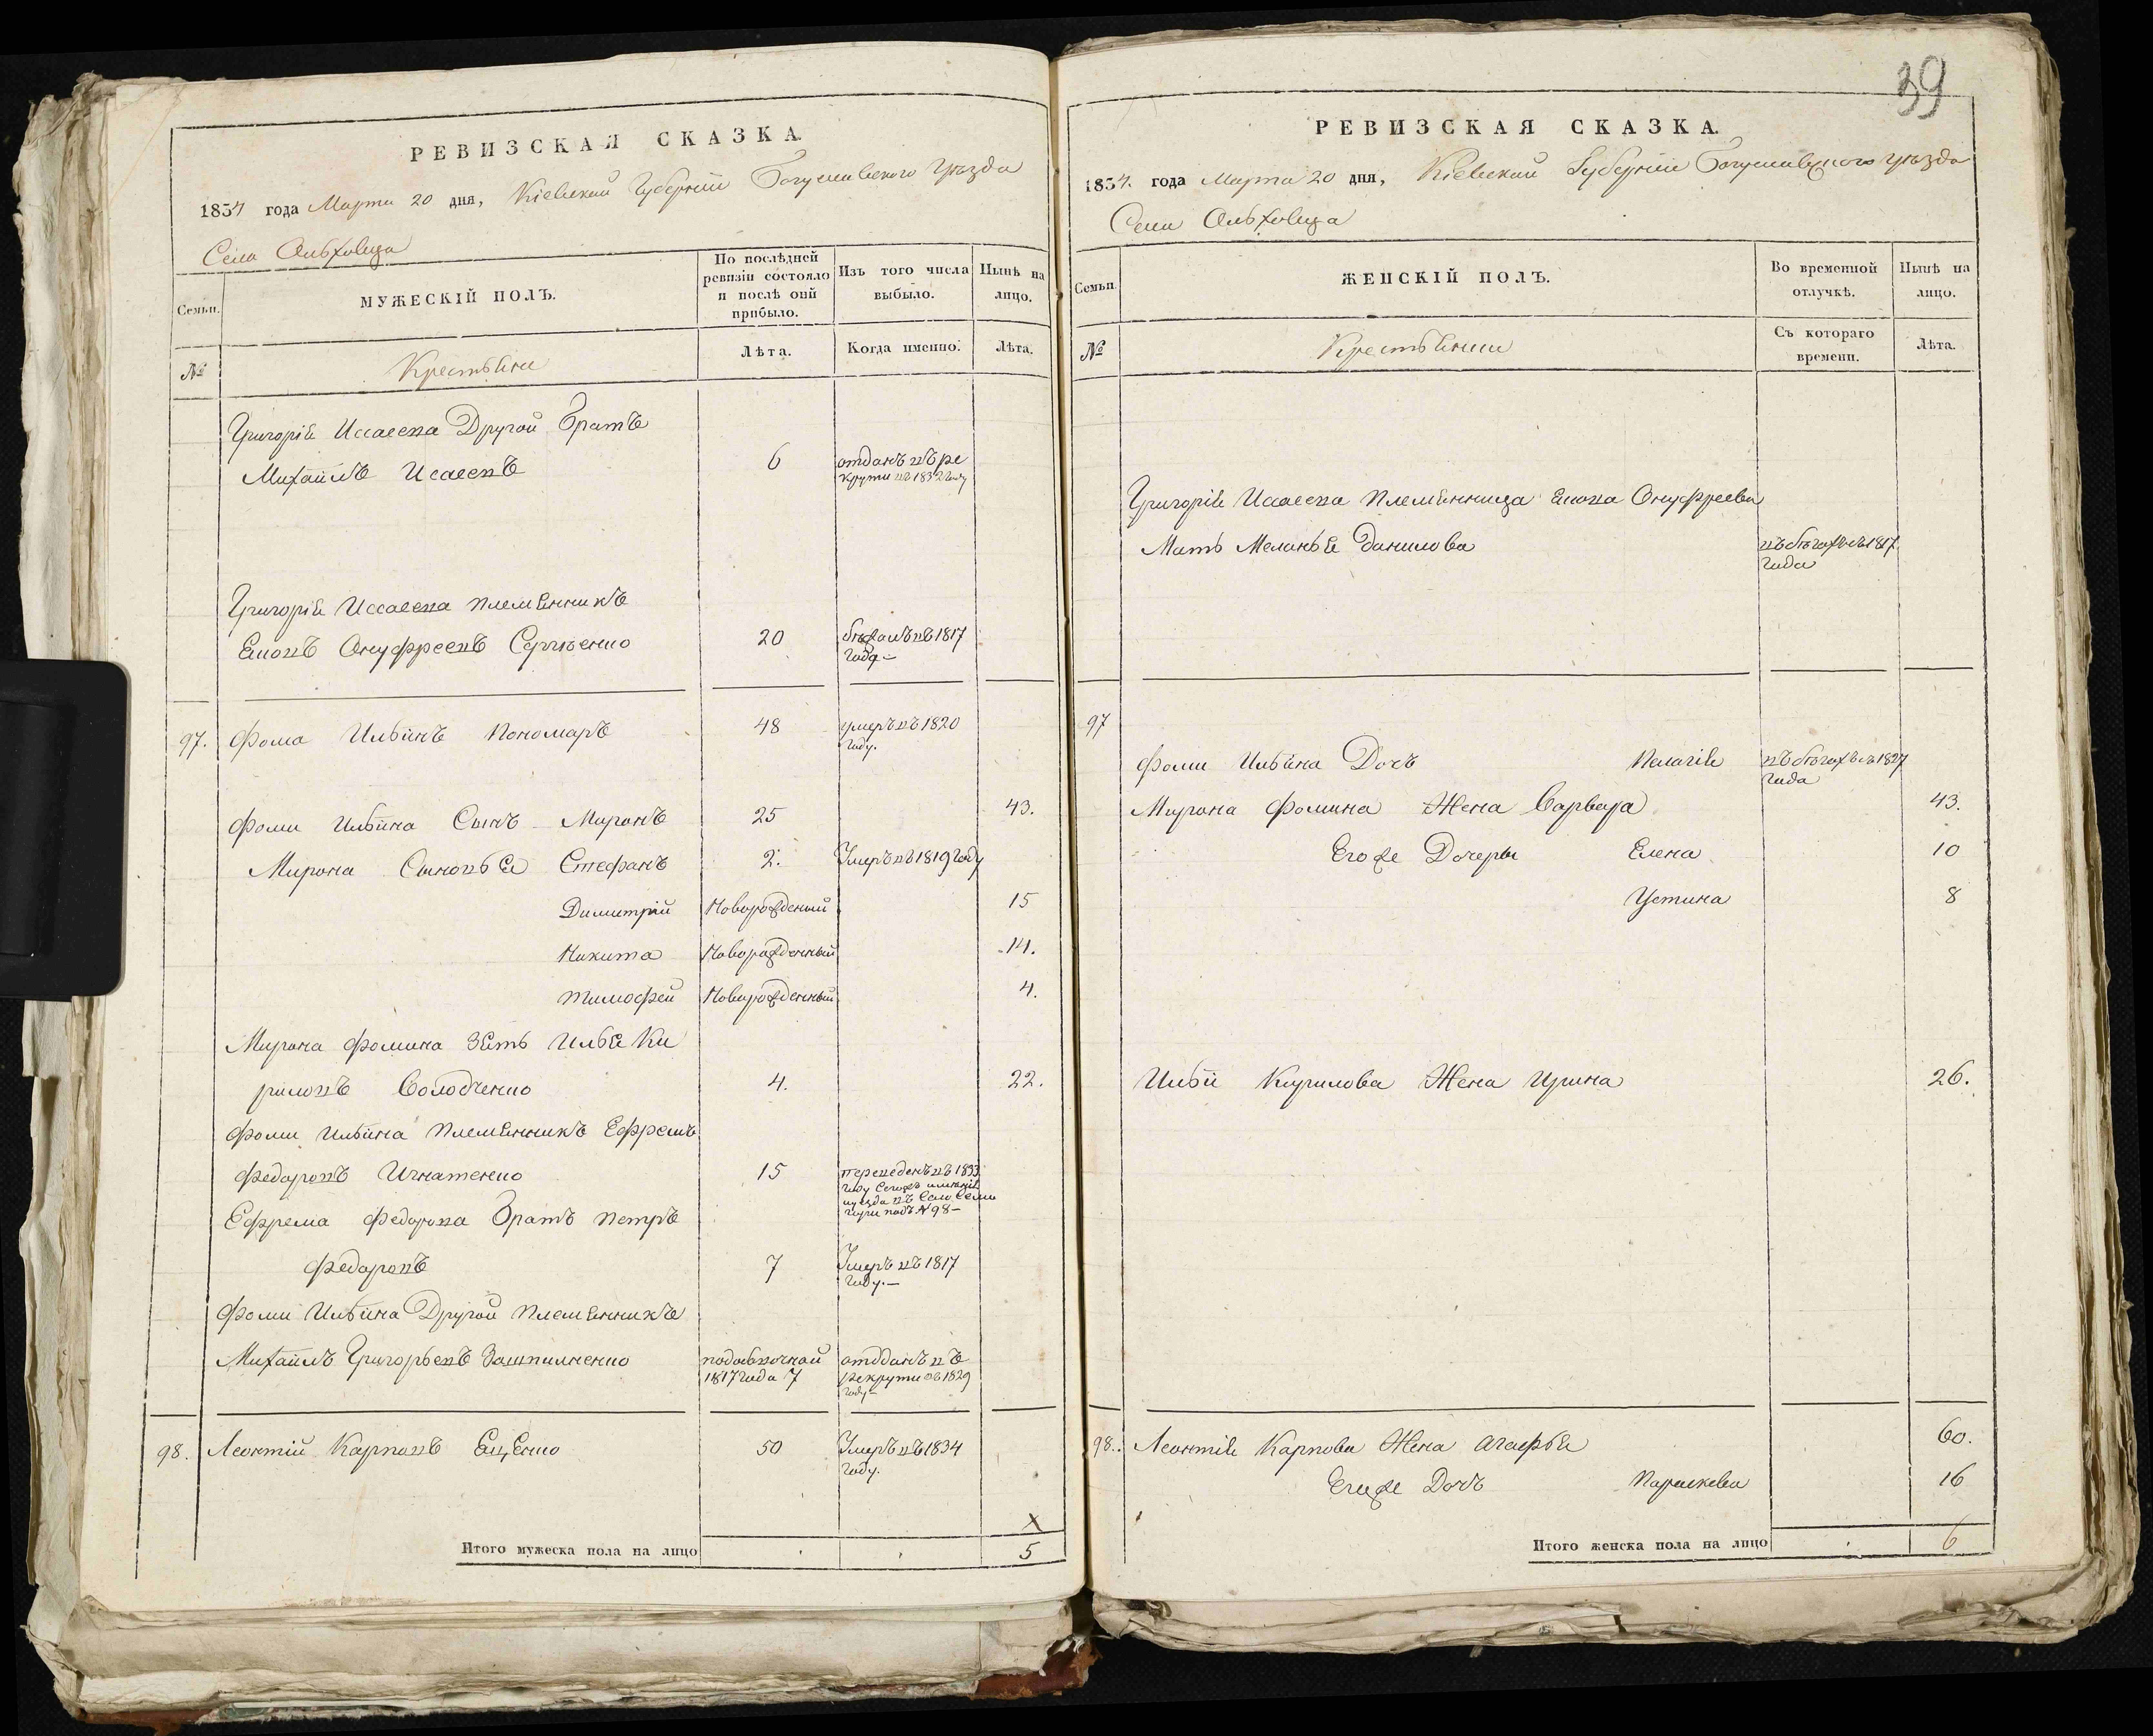 РЕВИЗСКАЯ СКАЗКА.
1834 года Марта 20 дня, Кіевской Губерніи Богуславского уѣзда
Села Ольховца
Семьи.
МУЖЕСКІЙ ПОЛЪ.
По послѣдней ревизіи состояло и послѣ оной прибыло.
Изъ того числа выбыло.
Нынѣ на лицо.
№
Крестьяне
Лѣта.
Когда именно.
Лѣта.
Григорія Иссаева Другой Братъ
Михаилъ Исаевъ 6 отданъ въ ре
круты въ 1832 году
Григорія Иссаева племянникъ
Яковъ Онуфреевъ Сергѣенко 20 бѣжалъ въ 1817
года —
97. Фома Ильинъ Пономарь 48 умеръ въ 1820
году.
Фомы Ильина Сынъ Миронъ 25 43.
Мирона Сыновья Стефанъ 2. Умеръ въ 1819 году
Димитрій Новорожденый 15
Никита Новорожденный 14.
Тимофей Новорожденный 4.
Мирона Фомина Зять Илья Ки
риловъ Солодченко 4. 22.
Фомы Ильина Племянникъ Ефремъ
Федоровъ Игнатенко 15 переведенъ въ 1833
году Сегожъ имѣнія
уѣзда въ Село Семи
гори подъ № 98 —
Ефрема Федорова Братъ Петръ
Федоровъ 7 Умеръ въ 1817
году. —
Фомы Ильина Другой Племянникъ
Михаилъ Григорьевъ 1817 года 7 отданъ въ
рекруты въ 1829
году —
98. Леонтій Карповъ Яценко 50 Умеръ въ 1834
году.
X
Итого мужеска пола на лицо 5
39
РЕВИЗСКАЯ СКАЗКА.
1834. года Марта 20 дня, Кіевской Губерніи Богуславского уѣзда
Села Ольховца
Семьи.
ЖЕНСКІЙ ПОЛЪ.
Во временной отлучкѣ.
Нынѣ на лицо.
№
Крестьянки
Съ котораго времени.
Лѣта.
Григорія Иссаева Племянница Якова Онуфреева
Мать Меланья Данилова въ бѣгахъ съ 1817
года
97
Фомы Ильина Дочь Пелагія въ бѣгахъ съ 1827
года
Мирона Фомина Жена Варвара 43.
Его же Дочеры Елена 10
Устина 8
Ильи Кирилова Жена Ирина 26.
98. Леонтія Карпова Жена Агафья 60.
Его же Дочь Параскева 16
Итого женска пола на лицо 6